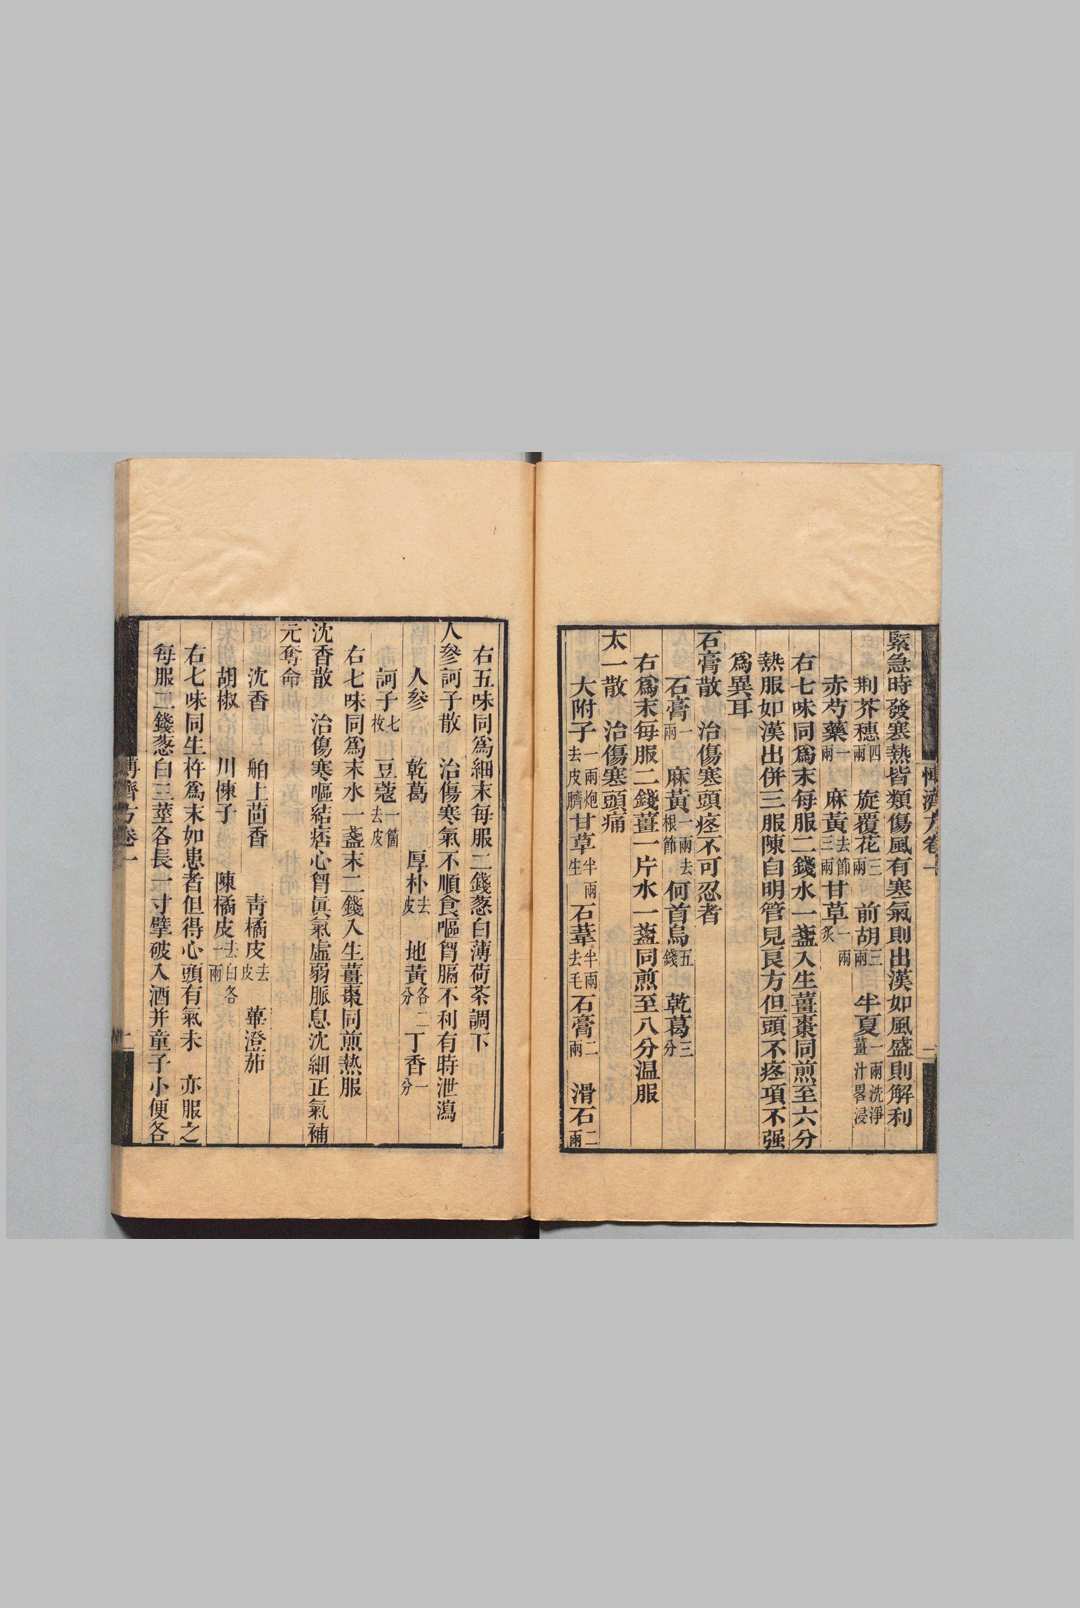 緊急時發寒熱皆類傷風有寒氣則出漢如風盛則解利
荆芥穗四兩 旋覆花三兩 前胡三兩 半夏一兩洗淨薑汁畧浸
赤芍藥一兩 麻黃去節三兩 甘草一兩炙
右七味同爲末每服二錢水一盞入生薑棗同煎至六分
熱服如漢出併三服陳自明管見良方但頭不疼項不强
爲異耳
石膏散 治傷寒頭疼不可忍者
石膏一兩 麻黃一兩去根節 何首烏五錢 乾葛三分
右爲末每服二錢薑一片水一盞同煎至八分温服
太一散 治傷寒頭痛
大附子一兩炮去皮臍 甘草半兩生 石葦半兩去毛 石膏二兩 滑石二兩
博濟方卷一 一
右五味同爲細末每服二錢葱白薄荷茶調下
人參訶子散 治傷寒氣不順食嘔胷膈不利有時泄瀉
人參 乾葛 厚朴去皮 地黃各二分 丁香一分
訶子七枚 豆蔻一箇去皮
右七味同爲末水一盞末二錢入生薑棗同煎熱服
沈香散 治傷寒嘔結痞心胷眞氣虛弱脈息沈細正氣補
元奪命
沈香 舶上茴香 靑橘皮去皮 蓽澄茄
胡椒 川楝子 陳橘皮去白各一兩
右七味同生杵爲末如患者但得心頭有氣未 亦服之
每服二錢葱白三莖各長一寸擘破入酒并童子小便各
博濟方卷一